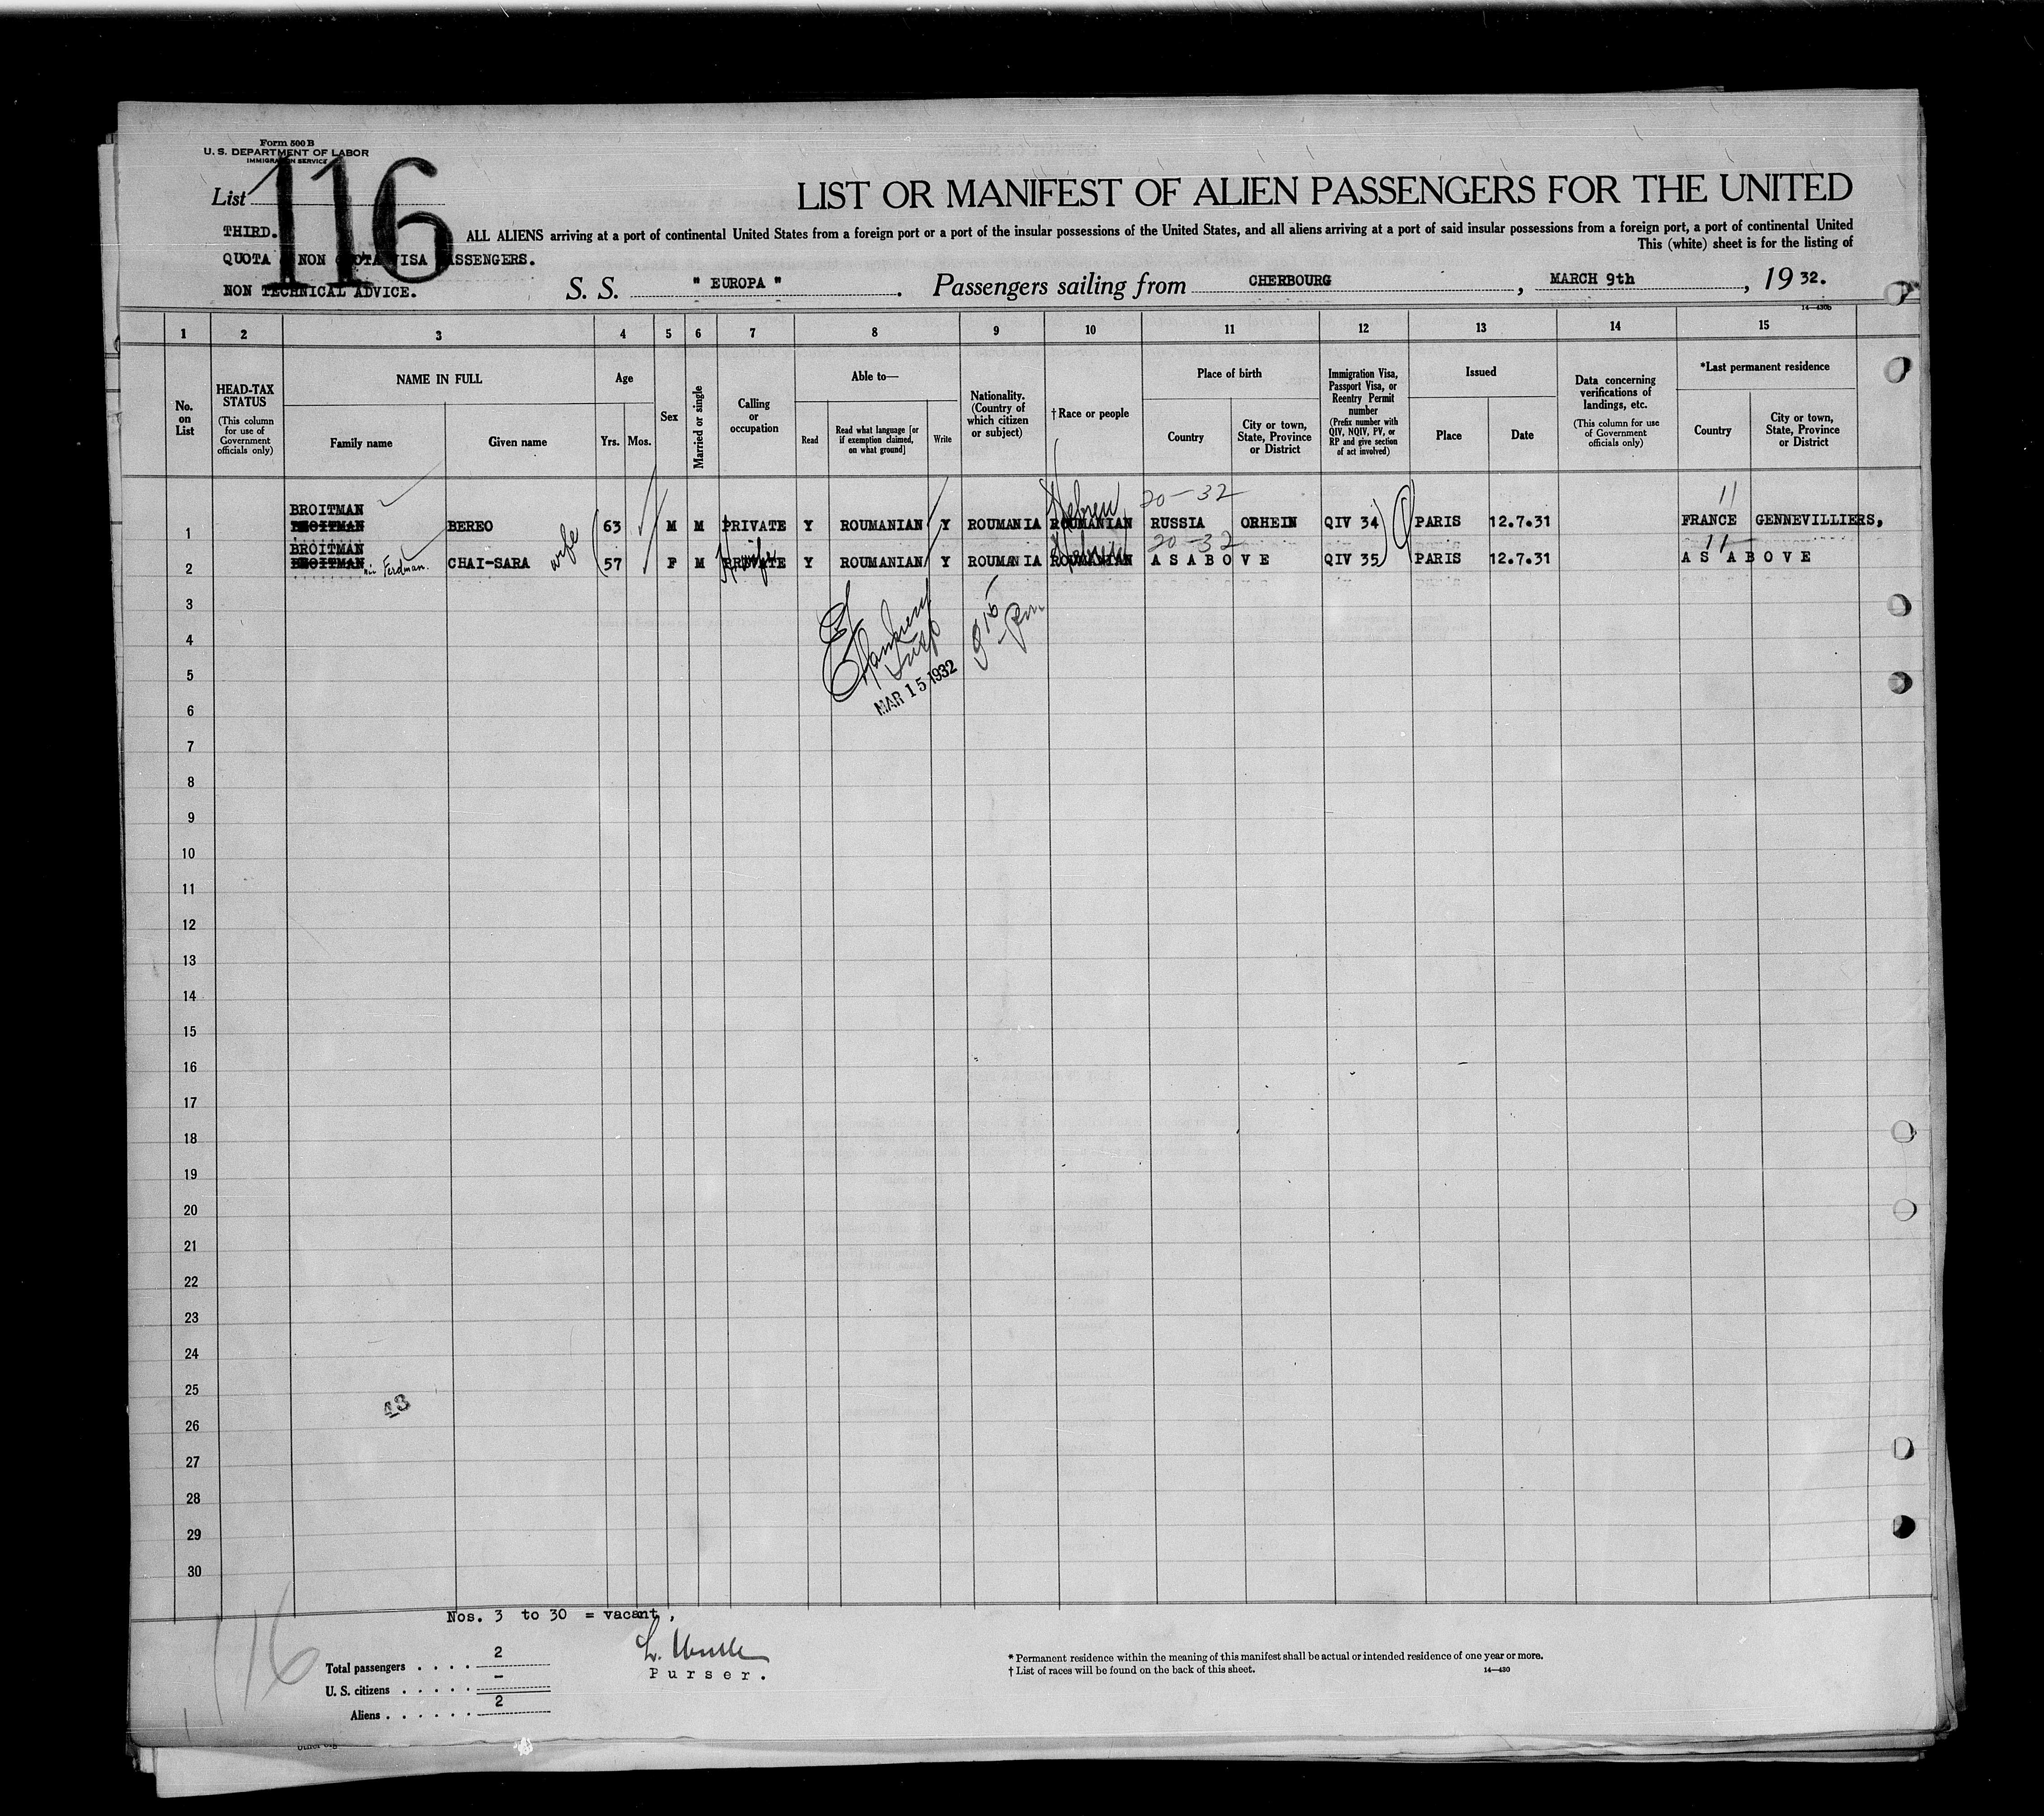 Form 500 B
U. S. DEPARTMENT OF LABOR
IMMIGRATION SERVICE
List 116
LIST OR MANIFEST OF ALIEN PASSENGERS FOR THE UNITED
THIRD.
ALL ALIENS arriving at a port of continental United States from a foreign port or a port of the insular possessions of the United States, and all aliens arriving at a port of said insular possessions from a foreign port, a port of continental United
This (white) sheet is for the listing of
QUOTA NON QUOTA VISA PASSENGERS.
NON TECHNICAL ADVICE.
S. S. " EUROPA ". Passengers sailing from CHERBOURG, MARCH 9th, 19 32.
14—430b
1 2 3 4 5 6 7 8 9 10 11 12 13 14 15
No. on List
HEAD-TAX STATUS (This column for use of Government officials only)
NAME IN FULL
Family name
Given name
Age
Yrs. Mos.
Sex
Married or single
Calling or occupation
Able to—
Read
Read what language [or if exemption claimed, on what ground]
Write
Nationality. (Country of which citizen or subject)
† Race or people
Place of birth
Country
City or town, State, Province or District
Immigration Visa, Passport Visa, or Reentry Permit number (Prefix number with QIV, NQIV, PV, or RP and give section of act involved)
Issued
Place
Date
Data concerning verifications of landings, etc. (This column for use of Government officials only)
*Last permanent residence
Country
City or town, State, Province or District
BROITMAN Hebrew 20-32 11
1 BEREO 63 M M PRIVATE Y ROUMANIAN Y ROUMANIA ROUMANIAN RUSSIA ORHEIN QIV 34 PARIS 12.7.31 FRANCE GENNEVILLIERS,
BROITMAN Hebrew 20-32 11
2 Ferdman. CHAI-SARA wife 57 F M PRIVATE Y ROUMANIAN Y ROUMANIA ROUMANIAN A S A B O V E QIV 35 PARIS 12.7.31 A S A B O V E
3
4
5
MAR 15 1932
6
7
8
9
10
11
12
13
14
15
16
17
18
19
20
21
22
23
24
25
43
26
27
28
29
30
Nos. 3 to 30 = vacant,
116
Total passengers . . . . 2
U. S. citizens . . . . . —
Aliens . . . . . . 2
Purser.
* Permanent residence within the meaning of this manifest shall be actual or intended residence of one year or more.
† List of races will be found on the back of this sheet.
14—430